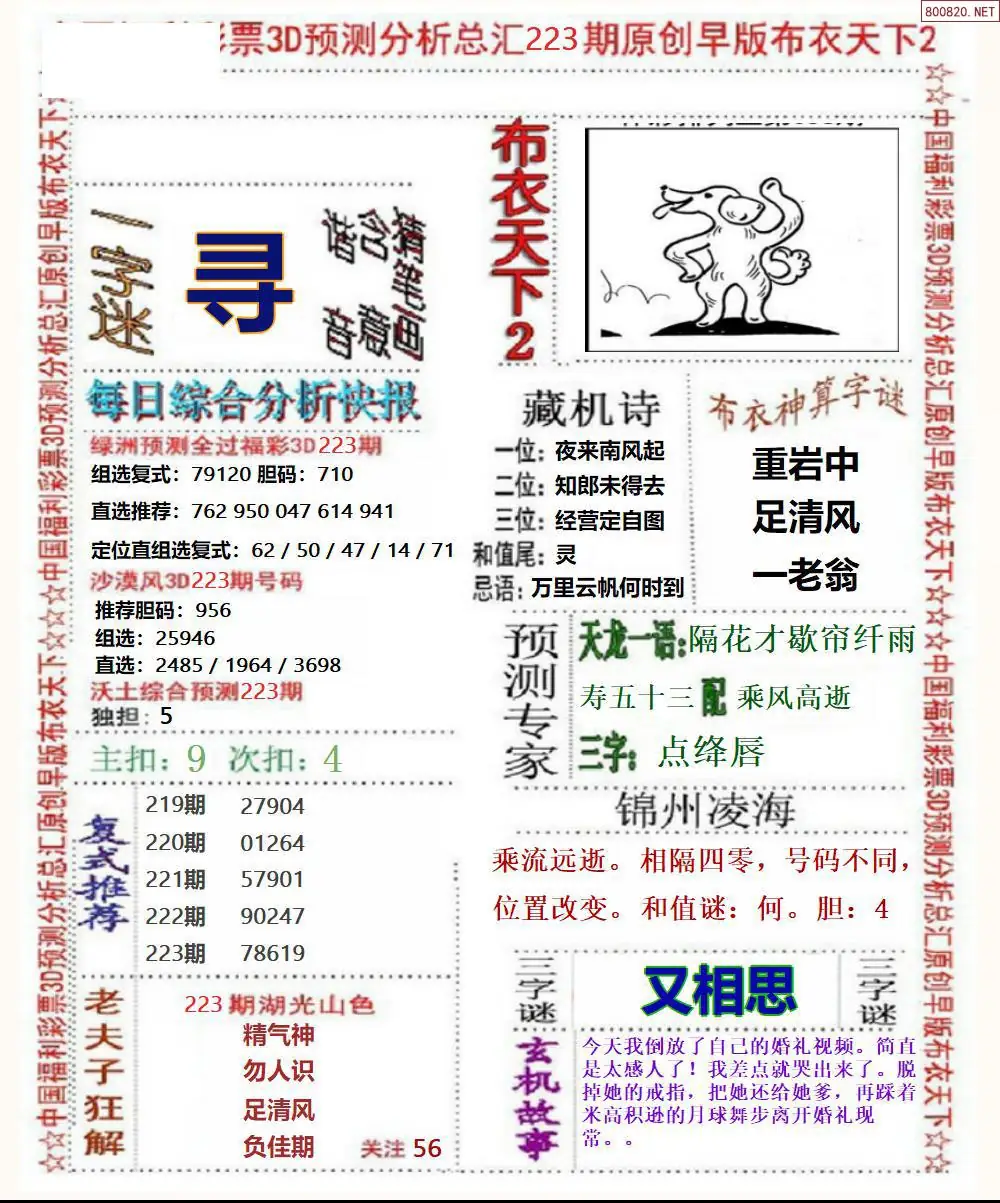 800820.NET
彩票3D预测分析总汇223期原创早版布衣天下2
☆☆中国福利彩票3D预测分析总汇原创早版布衣天下☆☆☆中国福利彩票3D预测分析总汇原创早版布衣天下☆
☆☆中国福利彩票3D预测分析总汇原创早版布衣天下☆☆☆中国福利彩票3D预测分析总汇原创早版布衣天下☆☆
一字迷
寻
猜笔画
含意
指音
布衣天下2
每日综合分析快报
绿洲预测全过福彩3D223期
组选复式：79120 胆码：710
直选推荐：762 950 047 614 941
定位直组选复式：62 / 50 / 47 / 14 / 71
沙漠风3D223期号码
推荐胆码：956
组选：25946
直选：2485 / 1964 / 3698
沃土综合预测223期
独担：5
主扣：9 次扣：4
复式推荐
219期 27904
220期 01264
221期 57901
222期 90247
223期 78619
老夫子狂解
223期湖光山色
精气神
勿人识
足清风
负佳期
关注 56
藏机诗
一位：夜来南风起
二位：知郎未得去
三位：经营定自图
和值尾：灵
忌语：万里云帆何时到
布衣神算字谜
重岩中
足清风
一老翁
预测专家
天龙一语:隔花才歇帘纤雨
寿五十三配乘风高逝
三字：点绛唇
锦州凌海
乘流远逝。相隔四零，号码不同，
位置改变。和值谜：何。胆：4
三字谜
又相思
三字谜
玄机故事
今天我倒放了自己的婚礼视频。简直
是太感人了！我差点就哭出来了。脱
掉她的戒指，把她还给她爹，再踩着
米高积逊的月球舞步离开婚礼现
常。。